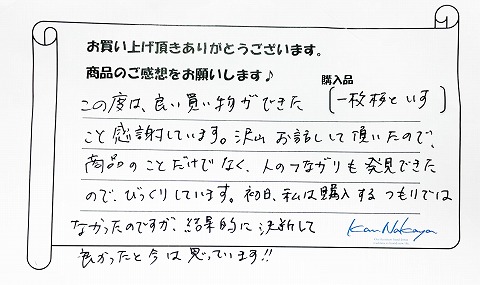 お買い上げ頂きありがとうございます。
商品のご感想をお願いします♪
購入品
この度は、良い買い物ができた
[一枚杉といす]
こと感謝しています。沢山お話しして頂いたので、
商品のことだけでなく、人のつながりも発見できた
ので、びっくりしています。初日、私は購入するつもりでは
なかったのですが、結果的に決断して
良かったと今は思っています!!
Kan Nakaya